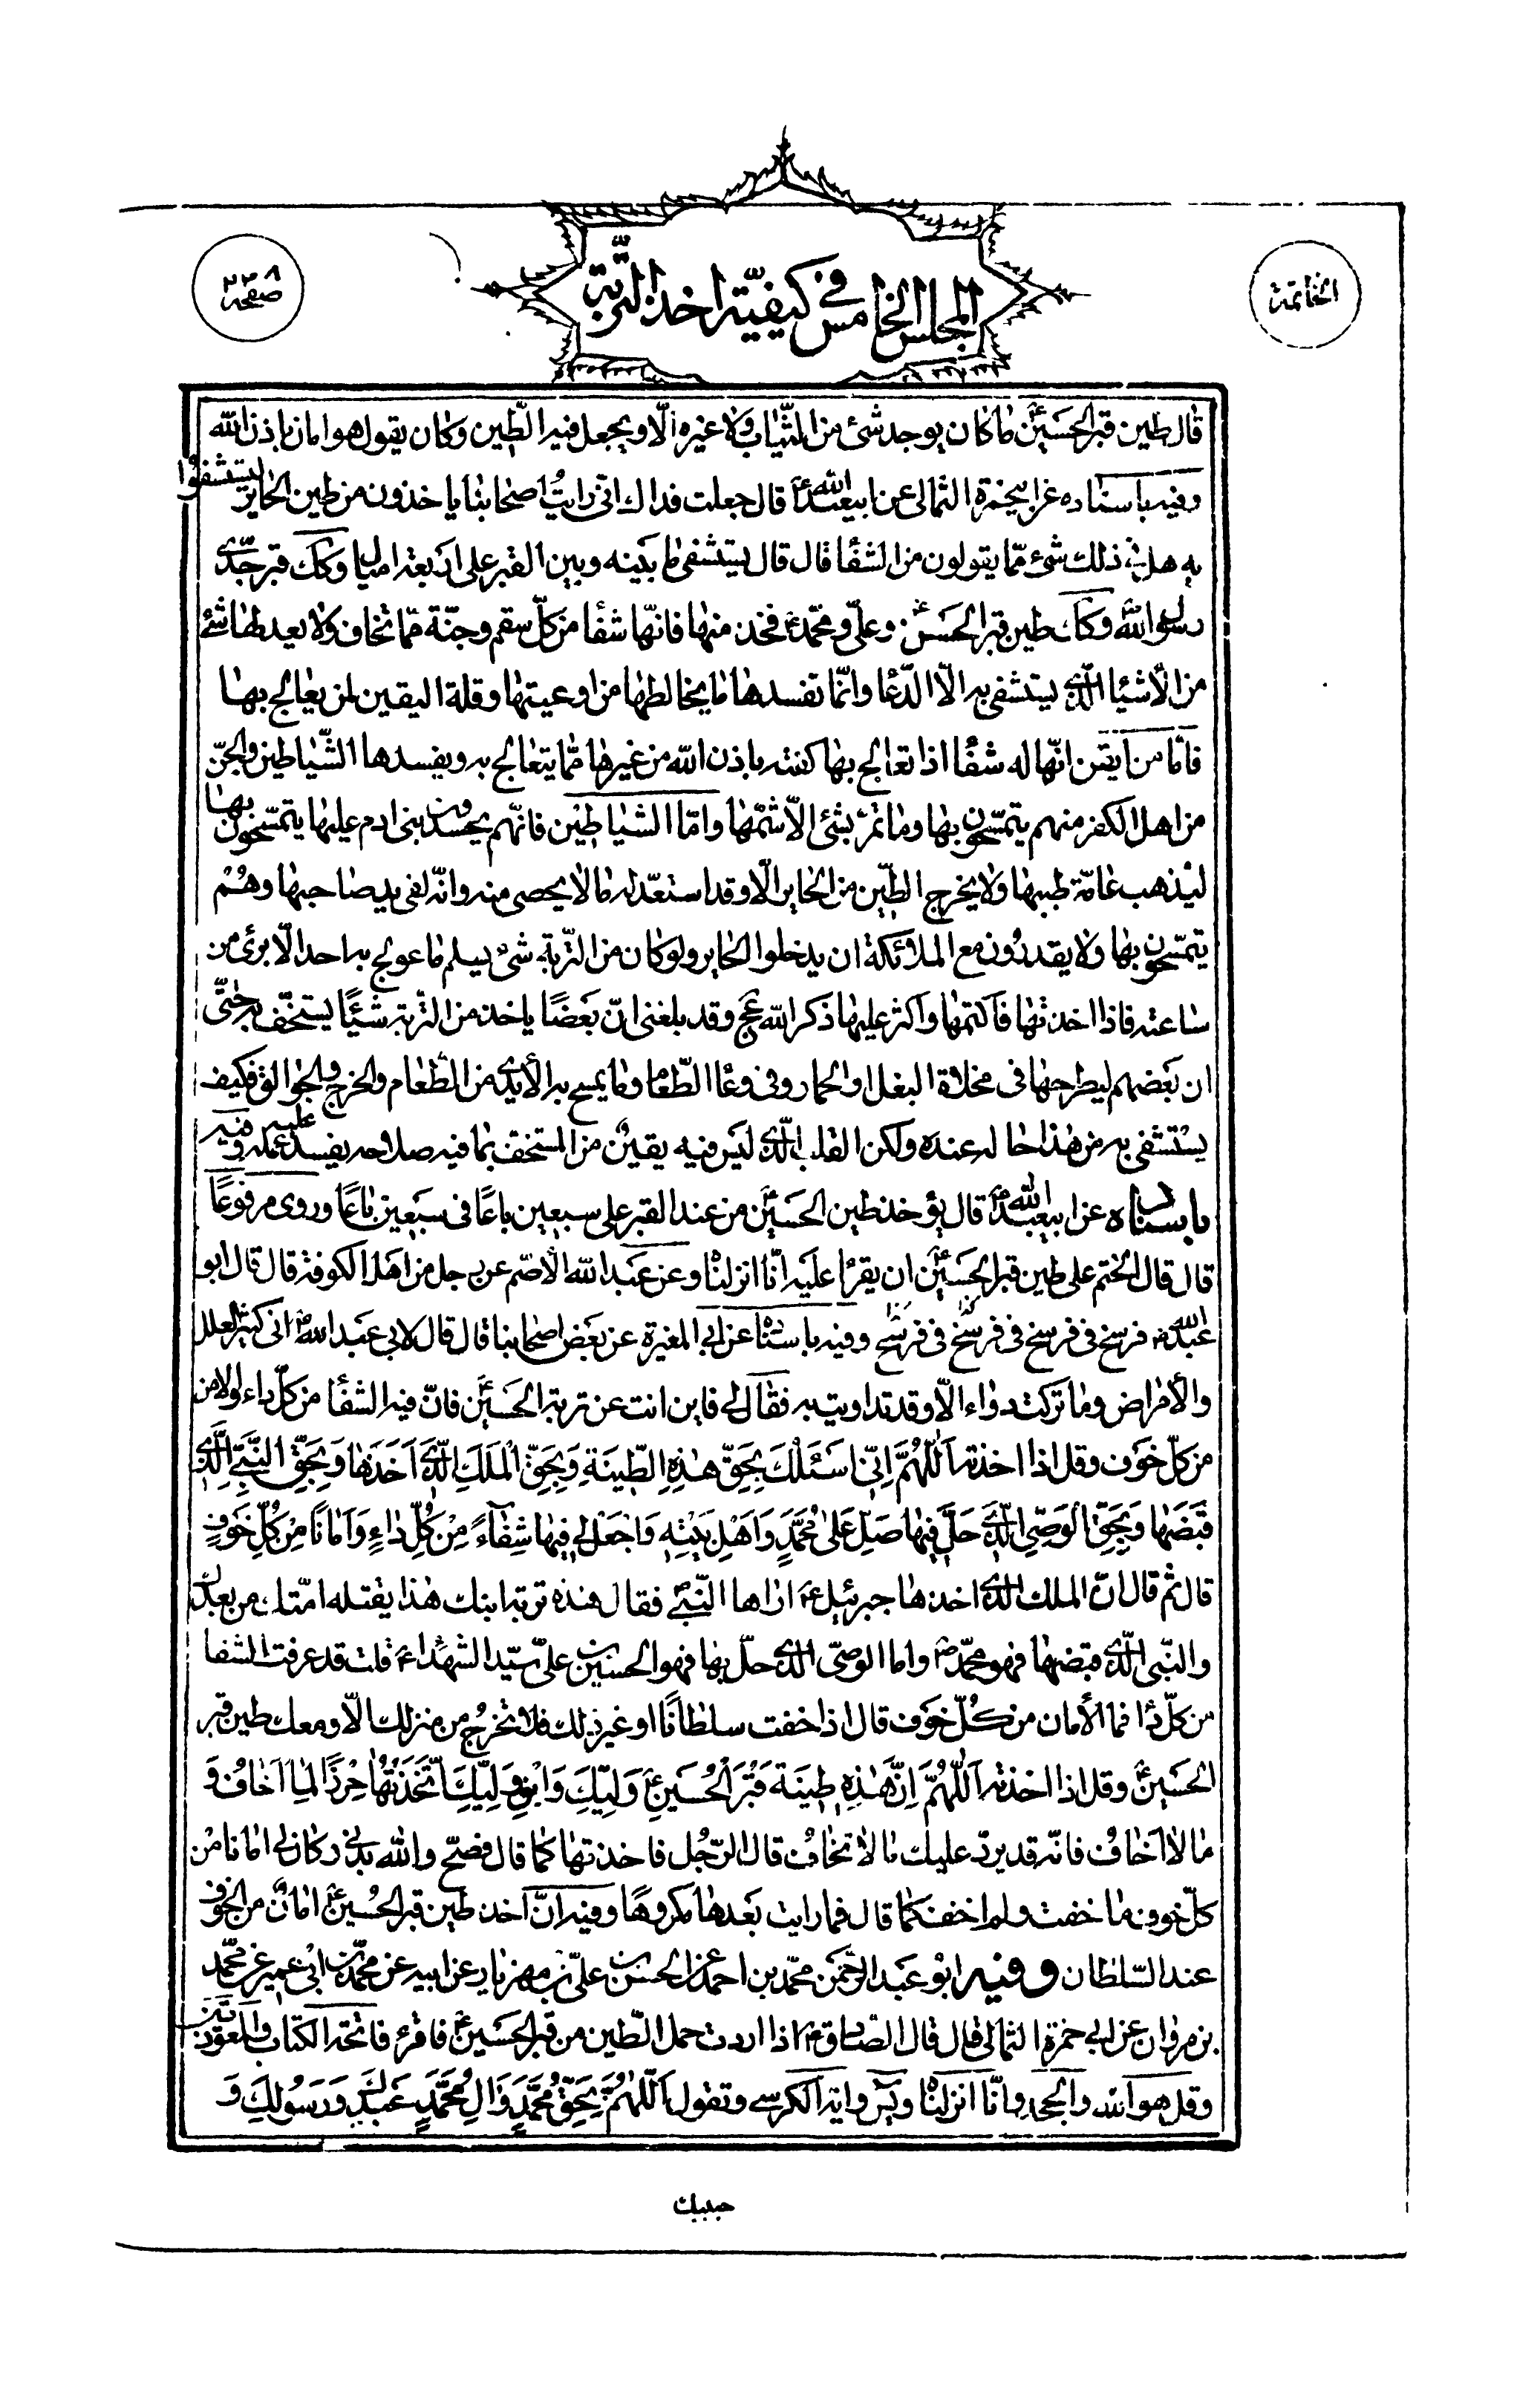 الخاتمة
المجلس الخامس في كيفيّة اخذ التّربة
صفحه ٢٣٨
قال طين قبر الحسينؑ ما كان يوجد شئ من الثياب ولا غيره الّا ويجعل فيه الطّين وكان يقول هو امان باذن الله
وفيه باسناده عن ابيحمزة الثمالى عن ابيعبد اللهؑ قال جعلت فداك انّى رايت اصحابنا ياخذون من طين الحاير ليستشفوا
به هل فى ذلك شئ ممّا يقولون من الشفا قال قال يستشفى ما بينه وبين القبر على اربعة اميال وكك قبر جدّى
رسول الله وكك طين قبر الحسنؑ وعلىّ ومحمّدؑ فخذ منها فانّها شفا من كلّ سقم وجنّة ممّا تخاف ولا يعدلها شئ
من الأشيا الّذى يستشفى به الّا الدّعا وانّما تفسدها ما يخالطها من اوعيتها وقلة اليقين لمن يعالج بها
فامّا من ايقن انّها له شفا اذا تعالج بها كفته باذن الله من غيرها ممّا يتعالج به ويفسدها الشّياطين والجنّ
من اهل الكفر منهم يتمسّحون بها وما تمرّ بشئ الّا شمّها وامّا الشياطين فانّهم يحسدون بنى ادم عليها يتمسّحون بها
ليذهب عامّة طيبها ولا يخرج الطّين من الحاير الّا وقد استعدّ له ما لا يحصى منه وانّه لفى يد صاحبها وهم
يتمسّحون بها ولا يقدرون مع الملائكة ان يدخلوا الحاير ولو كان من التّربة شئ يسلم ما عولج به احد الّا برئ من
ساعته فاذا اخذتها فاكتمها واكثر عليها ذكر الله عج وقد بلغنى انّ بعضًا ياخذ من التّربة شيئًا يستخفّ به حتّى
ان بعضهم ليطرحها فى مخلاة البغل او الحمار وفى وعا الطّعام وما يمسح به الأيدى من الطّعام والخرج والجوالق فكيف
يستشفى به من هذا حاله عنده ولكن القلب الّذى ليس فيه يقين من المستخف بما فيه صلاحه يفسد عليه عمله وفيه
باسناده عن ابيعبد اللهؑ قال يؤخذ طين الحسينؑ من عند القبر على سبعين باعًا فى سبعين باعًا وروى مرفوعًا
قال قال الختم على طين قبر الحسينؑ ان يقرأ عليه انّا انزلناه وعن عبد الله الاصّم عن رجل من اهل الكوفة قال قال ابو
عبد اللهؑ فرسخ فى فرسخ فى فرسخ فى فرسخ وفيه باسناده عن ابى المغيرة عن بعض اصحابنا قال قال لابى عبد اللهؑ انى كثير العلل
والأمراض وما تركت دواء الّا وقد تداويت به فقال لى فاين انت عن تربة الحسينؑ فانّ فيه الشفا من كلّ داء والامن
من كلّ خوف وقل اذا اخذته اَللّٰهُمَّ اِنّى اَسْئَلُكَ بِحَقِّ هٰذِهِ الطّينَةِ وَبِحَقِّ الْمَلَكِ الَّذى اَخَذَهٰا وَبِحَقِّ النَّبِىِّ الَّذى
قَبَضَهٰا وَبِحَقِّ الْوَصِىِّ الَّذى حَلَّ فيهٰا صَلِّ عَلىٰ مُحَمَّدٍ وَاَهْلِ بَيْتِه وَاجْعَلْ لى فيهٰا شِفٰآءً مِنْ كُلِّ دٰاءٍ وَاَمٰانًا مِنْ كُلِّ خَوْفٍ
قال ثم قال انّ الملك الّذى اخذها جبرئيلؑ اراها النّبىؐ فقال هذه تربة ابنك هذا يقتله امّتك من بعدك
والنّبى الّذى قبضها فهو محمّدؐ واما الوصىّ الّذى حلّ بها فهو الحسين بن علىّ سيّد الشهداءؑ قلت قد عرفت الشفا
من كلّ دا فما الأمان من كلّ خوف قال اذا خفت سلطانًا او غير ذلك فلا تخرج من منزلك الّا ومعك طين قبر
الحسينؑ وقل اذا اخذته اَللّٰهُمَّ اِنَّ هٰذِه طينَة قَبْرِ الْحُسَيْنِؑ وَلِيِّكَ وَابْنِ وَلِيِّكَ اتَّخَذْتُهٰا حِرْزًا لِمٰا اَخٰافُ وَ
مٰا لٰا اَخٰافُ فانّه قد يرد عليك ما لا تخاف قال الرّجل فاخذتها كما قال فصحّ والله بدنى وكان لى امانا من
كلّ خوف ما خفت وما لم اخف كما قال فما رايت بعدها مكروهًا وفيه انّ اخذ طين قبر الحسينؑ امان من الخوف
عند السّلطان وفيه ابو عبد الرّحمن محمّد بن احمد عن الحسن بن علىّ بن مهزيار عن ابيه عن محمّد بن ابى عمير عن محمّد
بن مروان عن ابى حمزة الثمالى قال قال الصّادقؑ اذا اردت حمل الطّين من قبر الحسينؑ فاقرء فاتحة الكتاب والمعوّذتين
وقل هو الله والجحد وانّا انزلناه ويس واية الكرسى وتقول اَللّٰهُمَّ بِحَقِّ مُحَمَّدٍ وَالِ مُحَمَّدٍ عَبْدِكَ وَرَسُولِكَ وَ
حبيبك